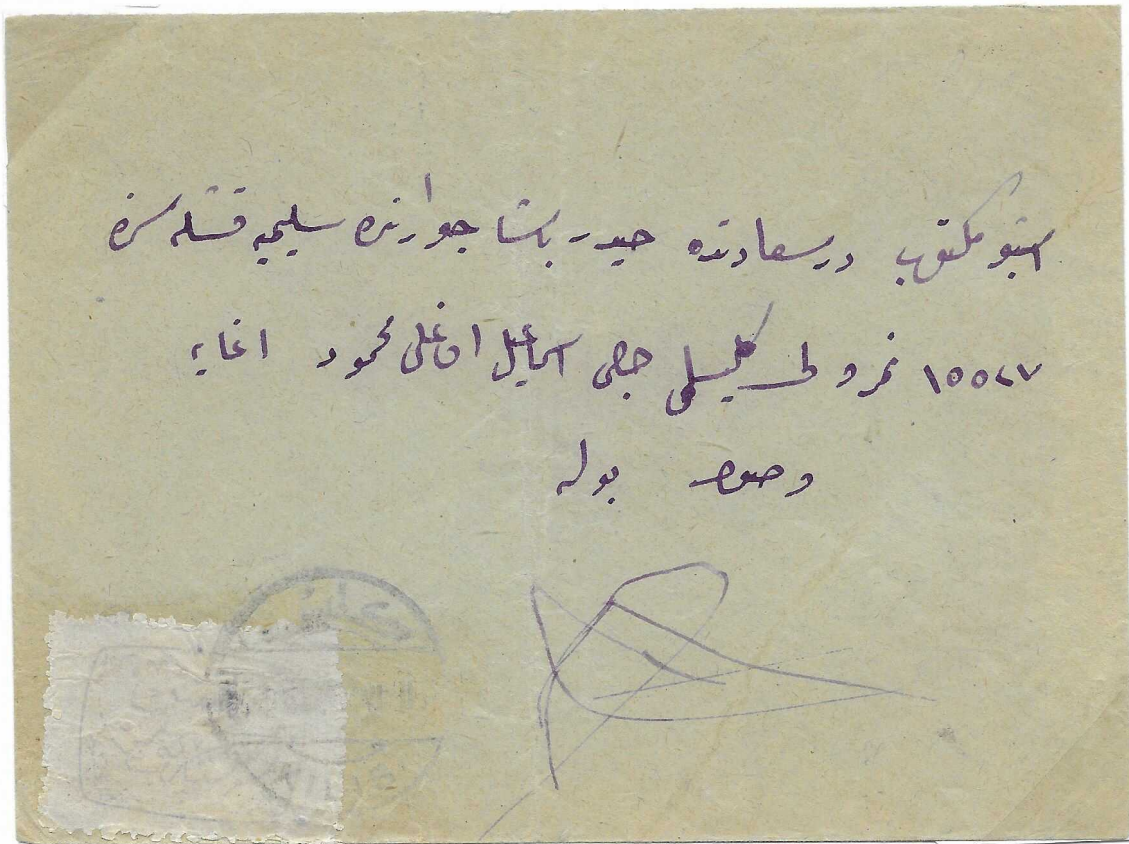 اشبو مكتوب درسعادتده حيدر پاشا جوارنده سليميه قشله سنده
١٥٥٢٧ نمرولى كليسلى حاجى اسماعيل اوغلى محمود اغايه
وصول بوله